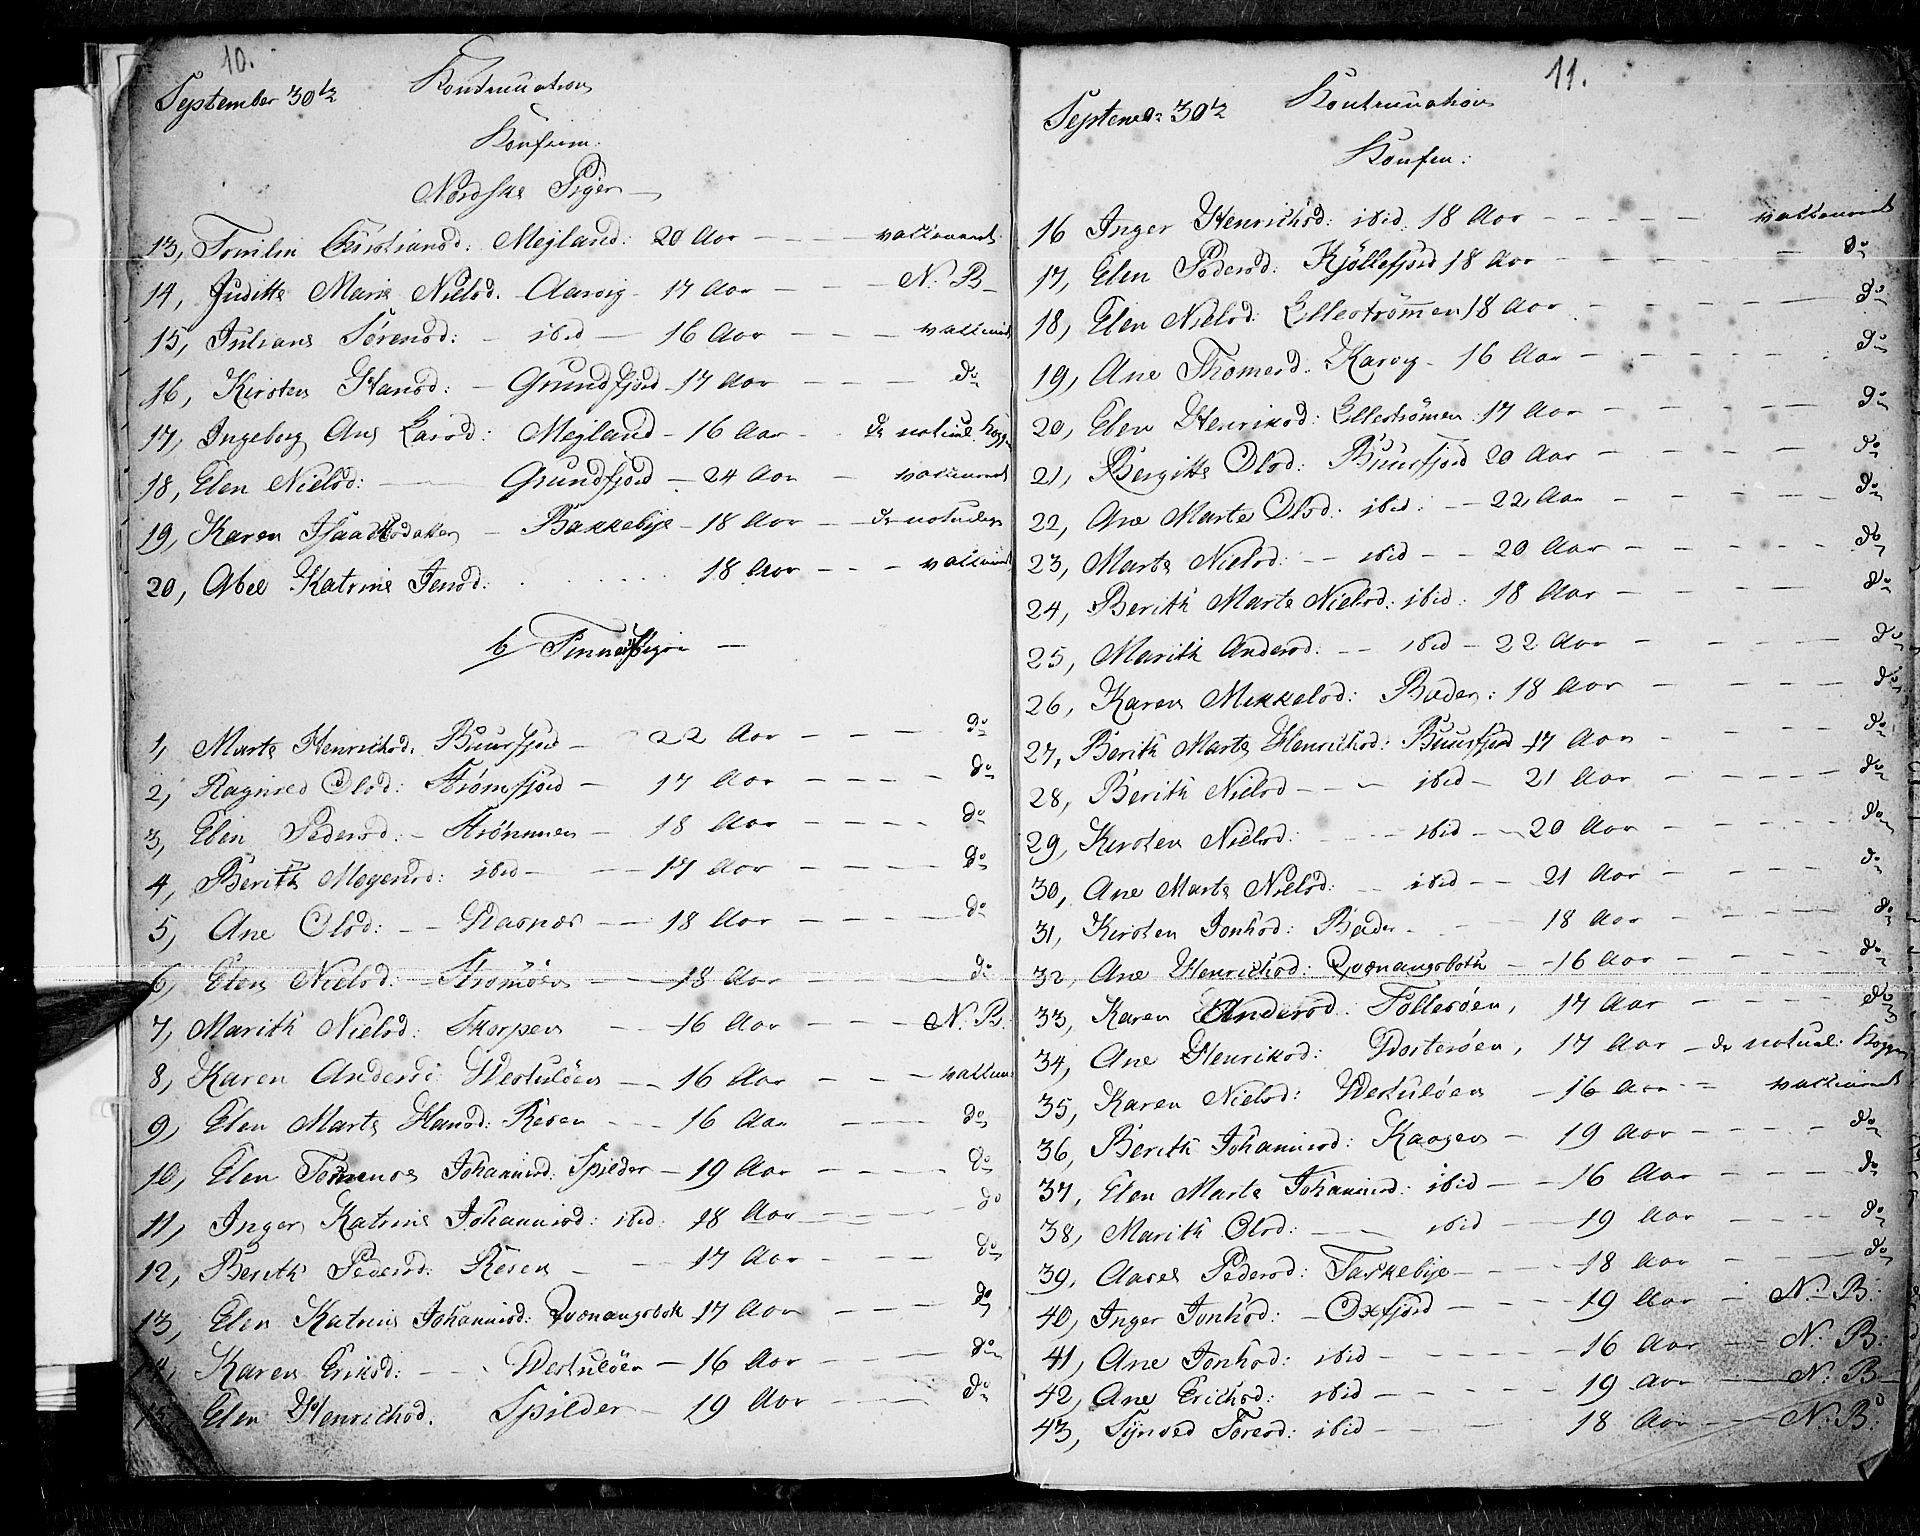 10.
September 30te Kontinuation
Konfirm:
Nordske Piger
13, Christiansd: Mejland: 20 Aar vaccineret
14, Juditte Marie Nielsd. Aarvig 17 Aar N. B
15, Juliane Sørensd: ibid 16 Aar
16, Kirsten Hansd: Grundfjord 17 Aar do
17, Ingeborg Ane Larsd: Mejland 16 Aar de naturl. Kopper
18, Elen Nielsd: Grundfjord 24 Aar vaccineret
19, Karen Isaachsdatter Bakkebye 18 Aar de naturlige
20, Abel Katrine Jensd: 18 Aar
b/ Finnepiger
1, Marte Henrichsd. Buursfjord 22 Aar do
2, Ragnild Olsd: Strømsfjord 17 Aar do
3, Elen Pedersd: Strømmen 18 Aar do
4, Berith Mogensd: ibid 17 Aar do
5, Ane Olsd: 18 Aar do
6, Elen Nielsd: Strømøen 18 Aar do
7, Marith Nielsd: Skorpen 16 Aar N. B.
8, Karen Andersd: 16 Aar
9, Elen Marte Hansd: Reisen 16 Aar do
10, Elen Johannisd: Spilder 19 Aar do
11, Inger Katrine Johannisd: ibid: 18 Aar do
12, Berith Pedersd: Reisen 17 Aar do
13, Elen Katrine Johannisd: Qvænangsbotn 17 Aar do
14, Karen Eriksd: 16 Aar do
15, Elen Henrichsd. Spilder 19 Aar do
11.
30te Kontinuation
Konfir:
16 Inger Henrichsd: ibid: 18 Aar vaccineret
17, Elen Pedersd: Kjøllefjord 18 Aar do
18, Elen Nielsd: Ellestrømmen 18 Aar do
19, Ane Thomesd: Karvig 16 Aar do
20, Elen Henriksd: Ellestrømen 17 Aar do
21, Bergitte Olsd: Buursfjord 20 Aar do
22, Ane Marte Olsd. ibid: 22 Aar do
23, Marte Nielsd: ibid 20 Aar do
24, Berith Marte Nielsd: ibid: 18 Aar do
25, Marith Andersd: ibid 22 Aar do
26, Karen Mikkelsd: Badder: 18 Aar do
27, Berith Marte Henrichsd: Buursfjord 17 Aar do
28, Berith Nielsd ibid 21 Aar do
29, Kirsten Nielsd: ibid 20 Aar do
30, Ane Marte Nielsd: ibid 21 Aar do
31, Kirsten Jonhsd: Bader 18 Aar do
32, Ane Henrichsd: Qvænangsbotn 16 Aar do
33, Karen Andersd: 17 Aar do
34, Ane Henriksd: 17 Aar de natural: Kopper
35, Karen Nielsd: 16 Aar vaccineret
36, Berith Johannisd: Kaagen 19 Aar do
37, Elen Marte Johannisd: ibid 16 Aar do
38, Marith Olsd: ibid 19 Aar do
39, Pedersd: 18 Aar do
40, Inger Jonhsd: Oxfjord 19 Aar N. B.
41, Ane Jonhsd: ibid 16 Aar N. B.
42, Ane Erichsd: ibid 19 Aar N. B
43, ibid 18 Aar N. B.